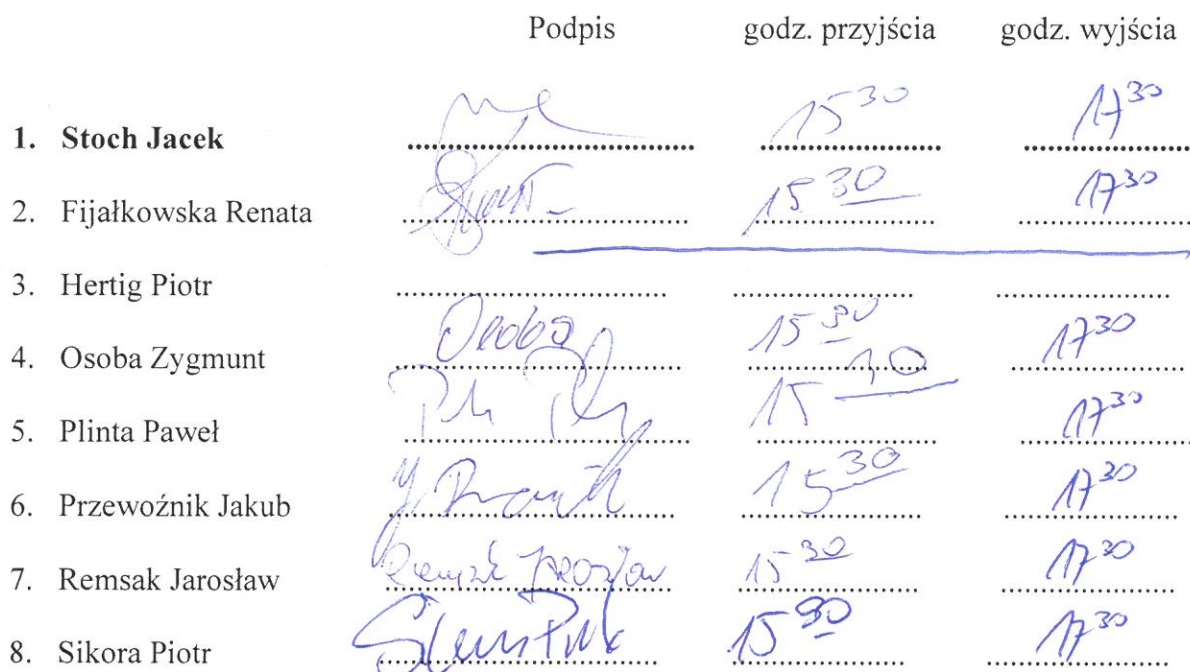 Podpis godz. przyjścia godz. wyjścia
1. Stoch Jacek 15 30 17 30
2. Fijałkowska Renata 15 30 17 30
3. Hertig Piotr
4. Osoba Zygmunt Osoba 15 30 17 30
5. Plinta Paweł 15 30 17 30
6. Przewoźnik Jakub 15 30 17 30
7. Remsak Jarosław Remsak Jarosław 15 30 17 30
8. Sikora Piotr 15 30 17 30